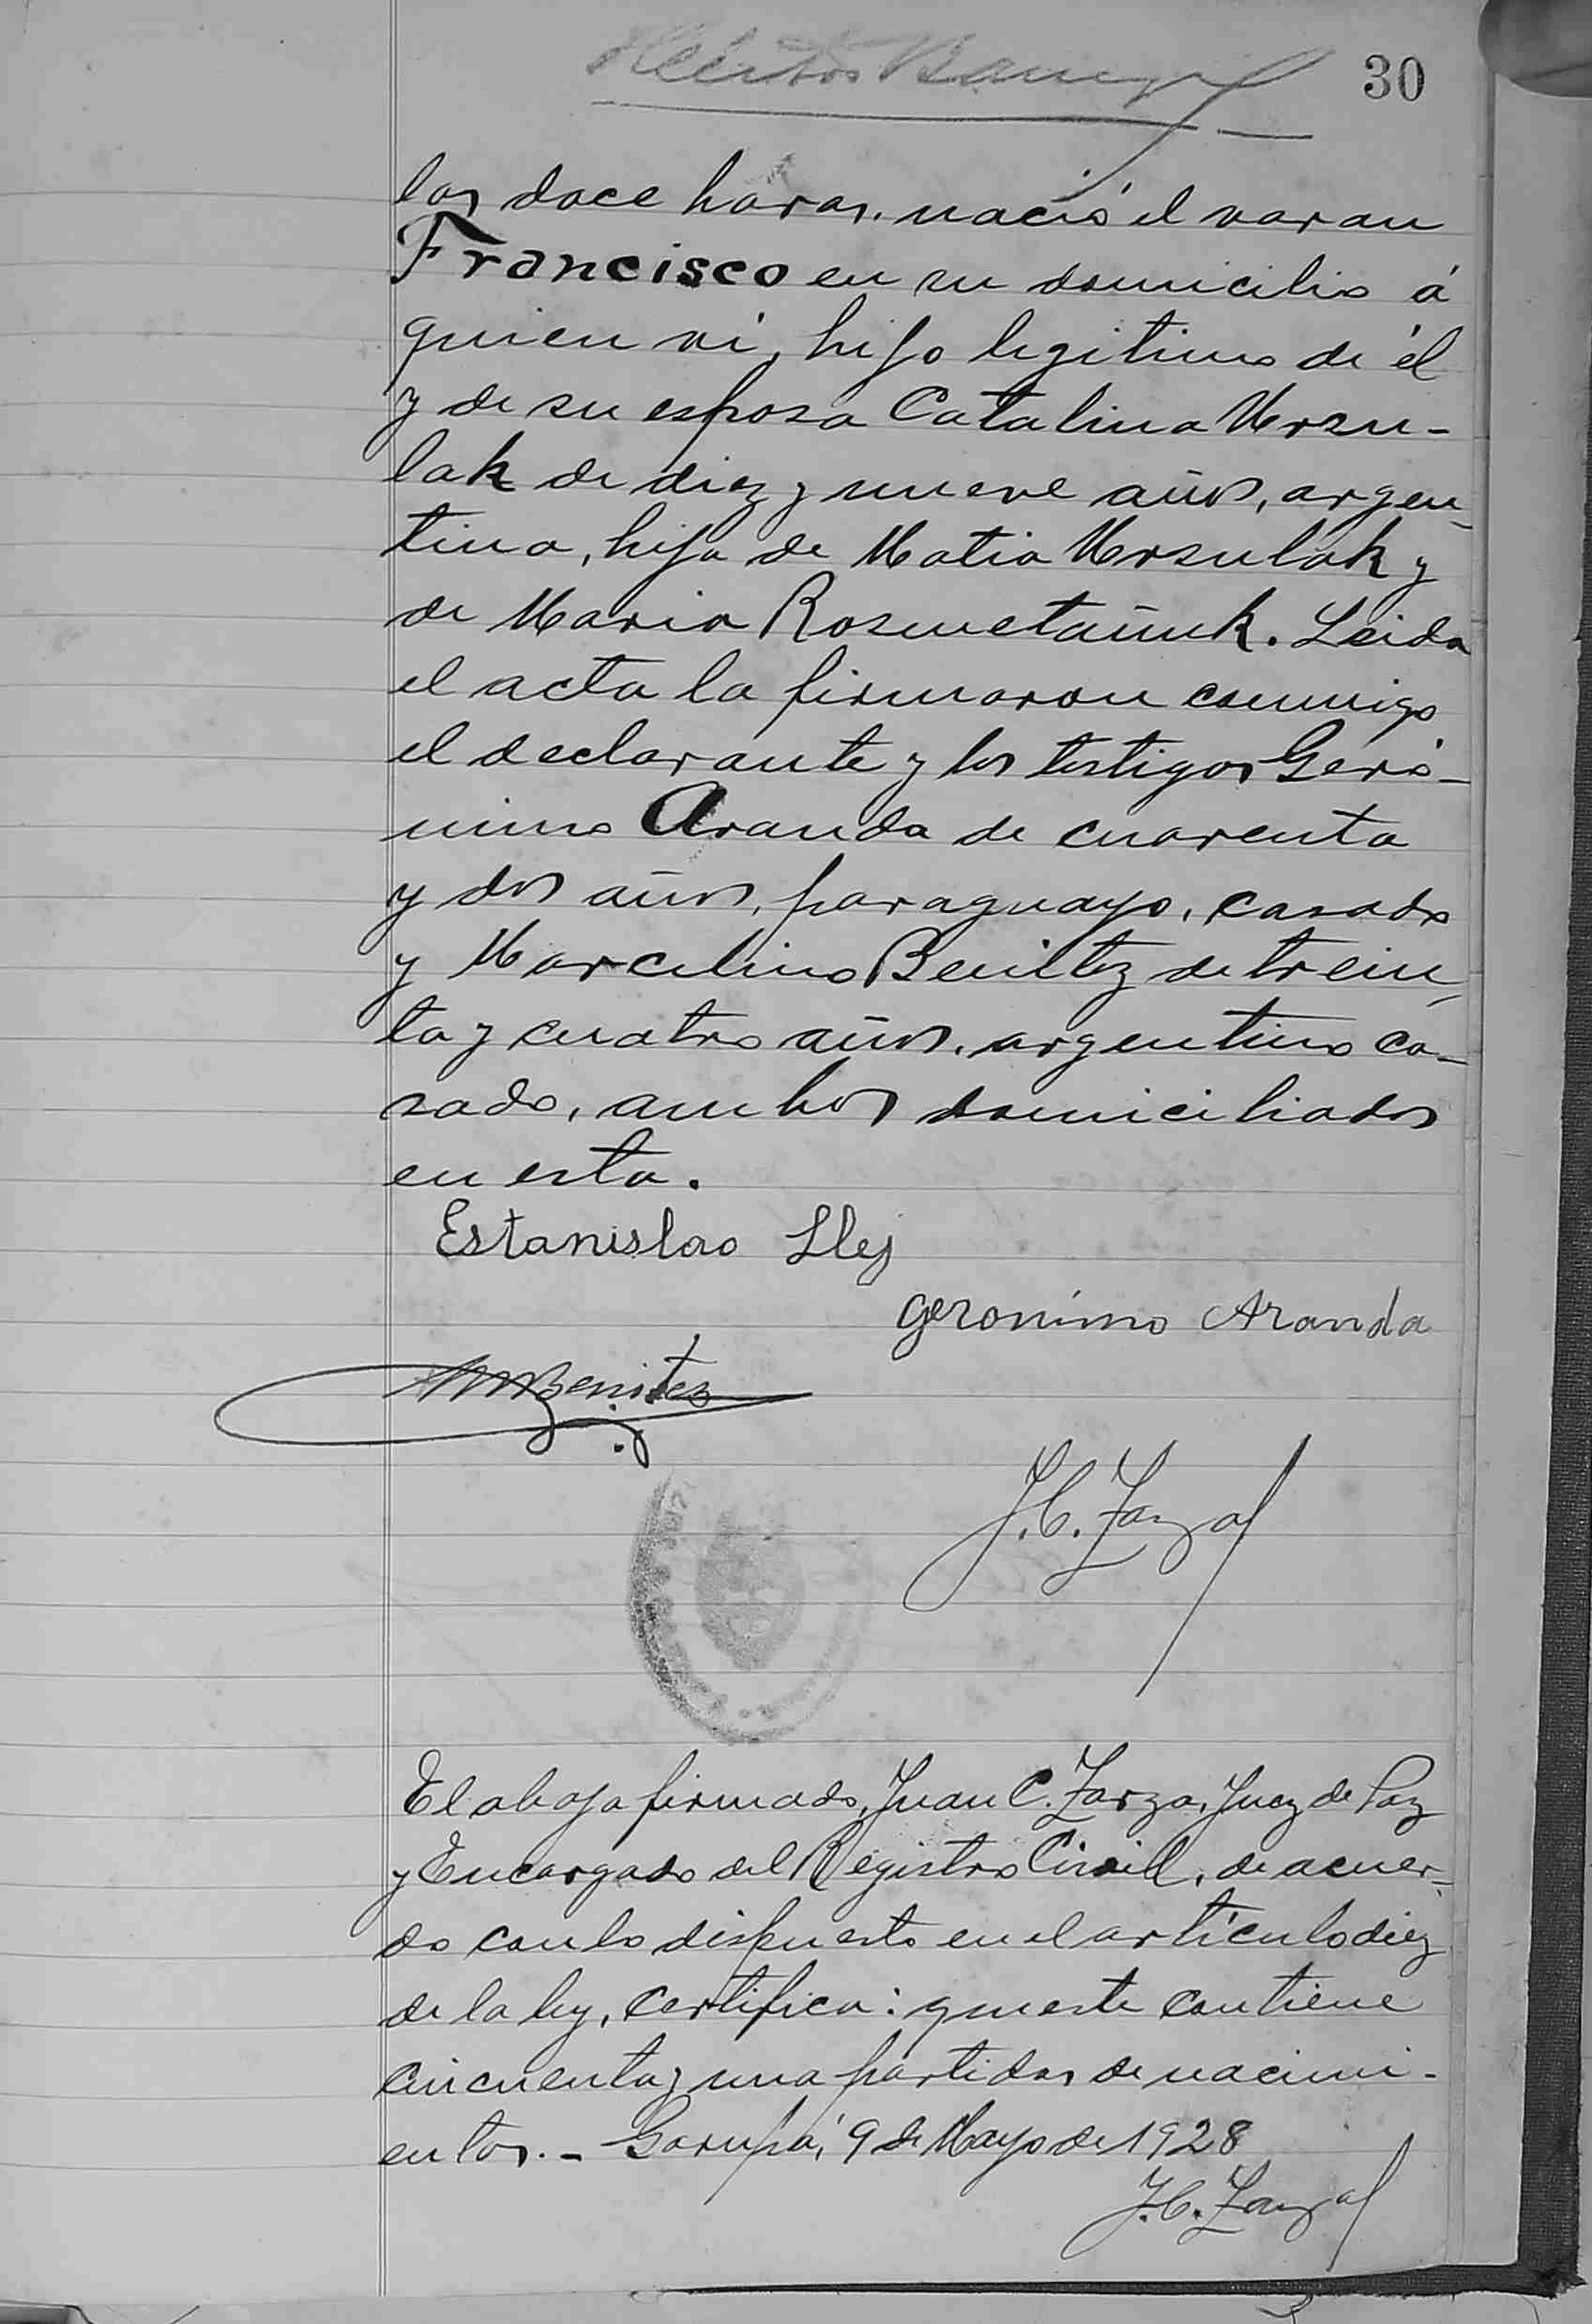 30
las doce horas. nació el varon
Francisco en su domicilio á
quien ví, hijo legitimo de él
y de su esposa Catalina Ursu-
lak de diez y nueve años, argen-
tina, hija de Matia Ursulak y
de Maria Rosmetañuk. Leida
el acta la firmaron conmigo
el declarante y los testigos Geró-
nimo Aranda de cuarenta
y dos años, paraguayo, casado
y Marcelino Benitez de trein-
ta y cuatro años. argentino ca-
sado, ambos domiciliados
en esta.
Estanislao Lley
Geronimo Aranda
MBenitez
J.C. Zarza
El abajo firmado, Juan C. Zarza, Juez de Paz
y Encargado del Registro Civil, de acuer-
do con lo dispuesto en el artículo diez
de la ley, certifica: que este contiene
cincuenta y una partidas de nacimi-
entos.- Garupá, 9 de Mayo de 1928
J.C. Zarza